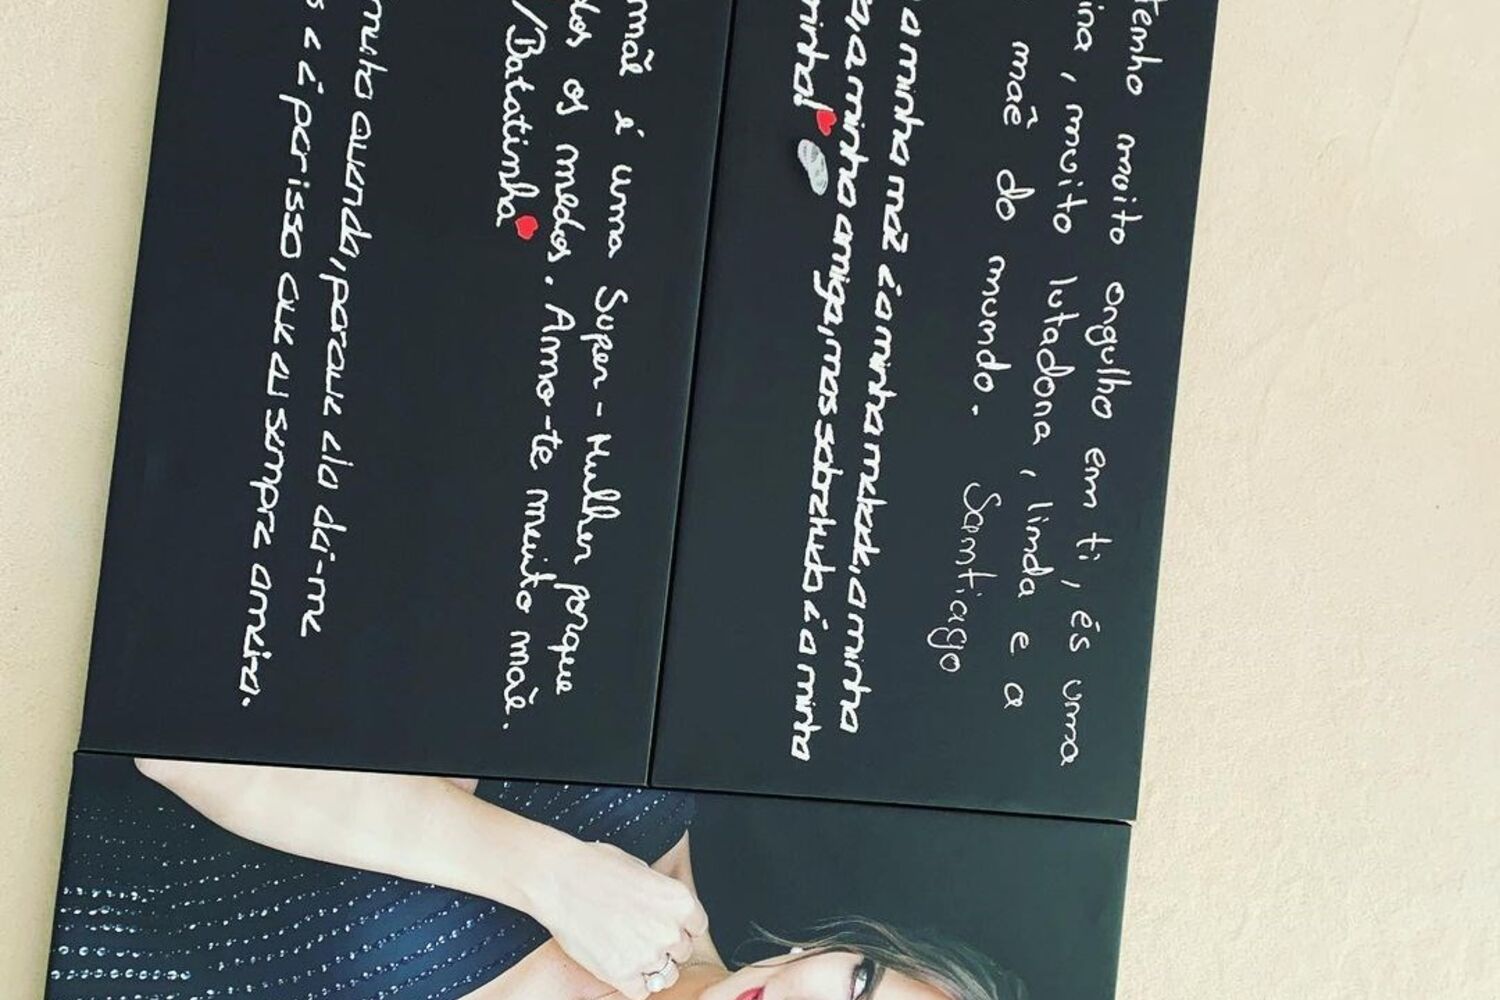 tenho muito orgulho em ti, és uma
ina, muito lutadora, linda e a
mãe do mundo. Santiago
a minha mãe é a minha metade, a minha
a minha amiga, mas sobretudo é a minha
rinha!
mãe é uma Super-Mulher porque
dos os medos. Amo-te muito mãe.
/Batatinha
muito querida, porque ela dá-me
s e é por isso que eu sempre amei-a.